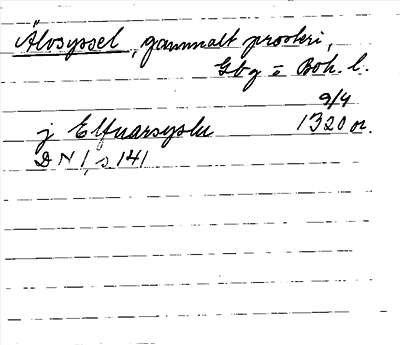 Älvsyssel, gammalt prosteri,
Gbg o Boh. l.
9/4
j Elfuarsyslu 1320 or.
DN 1, s 141